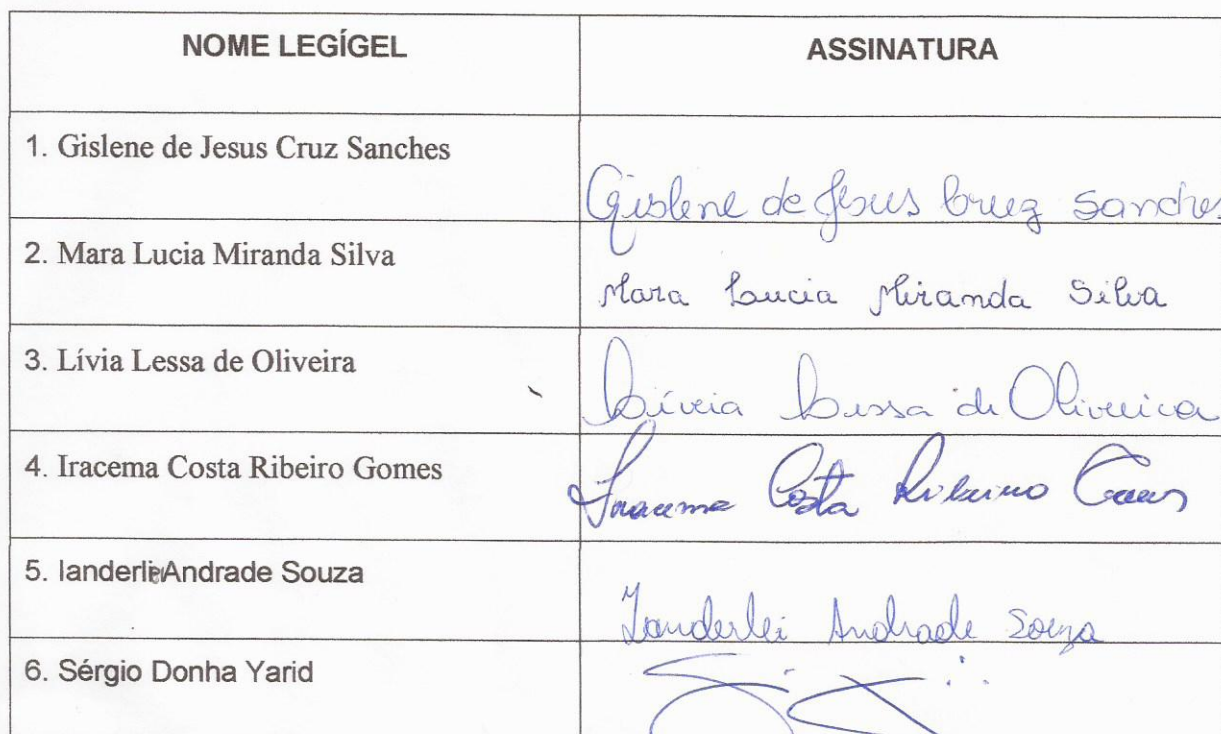 NOME LEGÍGEL
ASSINATURA
1. Gislene de Jesus Cruz Sanches
Gislene de Jesus Cruz Sanches
2. Mara Lucia Miranda Silva
Mara Lucia Miranda Silva
3. Lívia Lessa de Oliveira
Lívia Lessa de Oliveira
4. Iracema Costa Ribeiro Gomes
Iracema Costa Ribeiro Gomes
5. Ianderlei Andrade Souza
Ianderlei Andrade Souza
6. Sérgio Donha Yarid